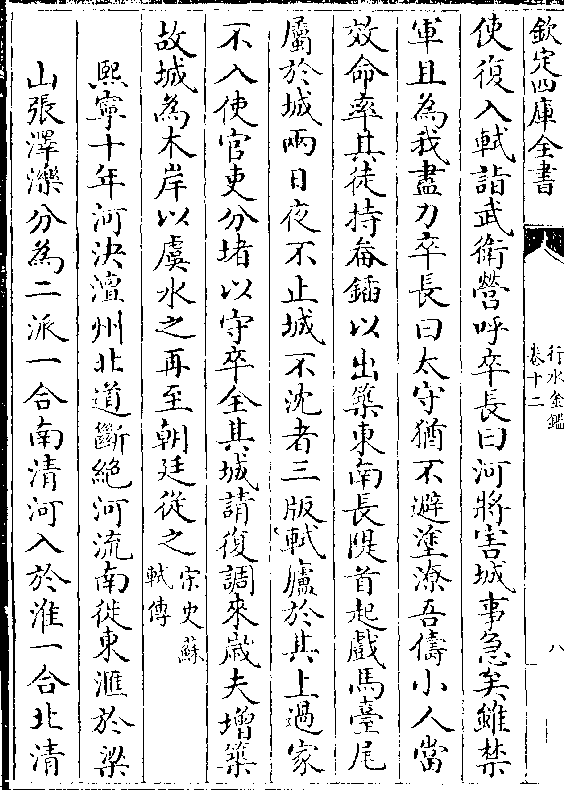 欽定四庫全書
行水金鑑
卷十二
八
使復入軾詣武衛營呼卒長曰河將害城事急矣雖禁
軍且為我盡力卒長曰太守猶不避塗潦吾儕小人當
效命率其徒持畚鍤以出築東南長隄首起戲馬臺尾
屬於城兩日夜不止城不沈者三版軾廬於其上過家
不入使官吏分堵以守卒全其城請復調來歲夫增築
故城為木岸以虞水之再至朝廷從之宋史蘇軾傳
熙寧十年河決澶州北道斷絕河流南徙東滙於梁
山張澤濼分為二派一合南清河入於淮一合北清